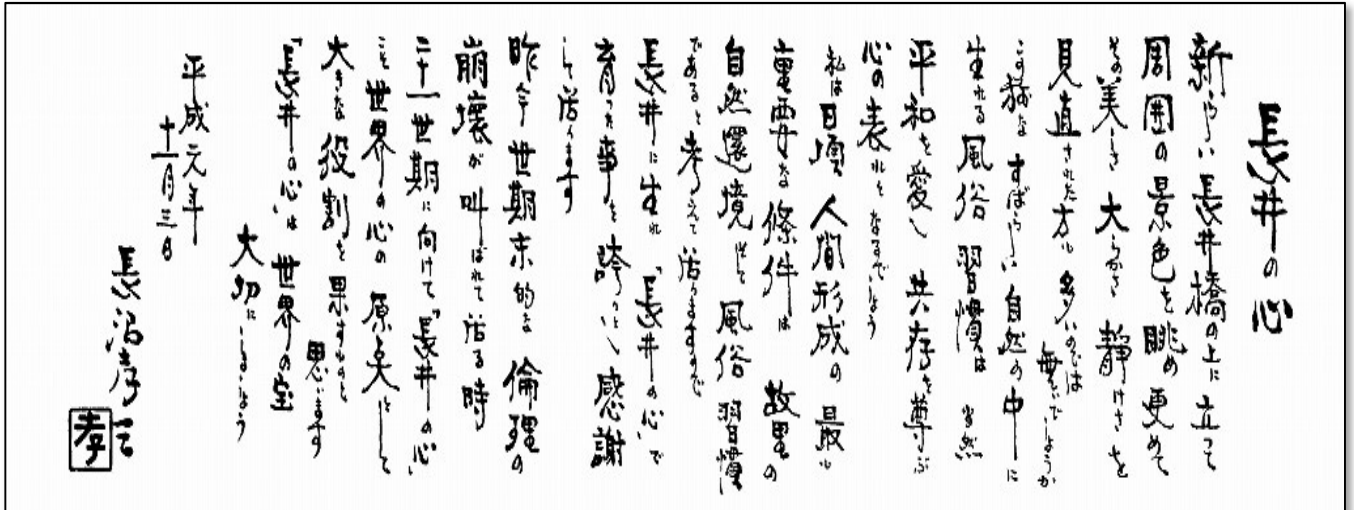 長井の心
新らしい長井橋の上に立って
周囲の景色を眺め更めて
その美しさ大らかさ静けさを
見直された方も多いのでは
無いでしょうか
この様なすばらしい自然の中に
生れる風俗習慣は当然
平和を愛し共存を尊ぶ
心の表れとなるでしょう
私は日頃人間形成の最も
重要な條件は故里の
自然還境そして風俗習慣
であると考えて居りますので
長井に生れ「長井の心」で
育った事を誇りとし感謝
して居ります
昨今世期末的な倫理の
崩壊が叫ばれて居る時
二十一世期に向けて「長井の心」
こそ世界の心の原点として
大きな役割を果すものと
思います
「長井の心」は世界の宝
大切にしましょう
平成元年
十一月三日
長沼孝三
孝